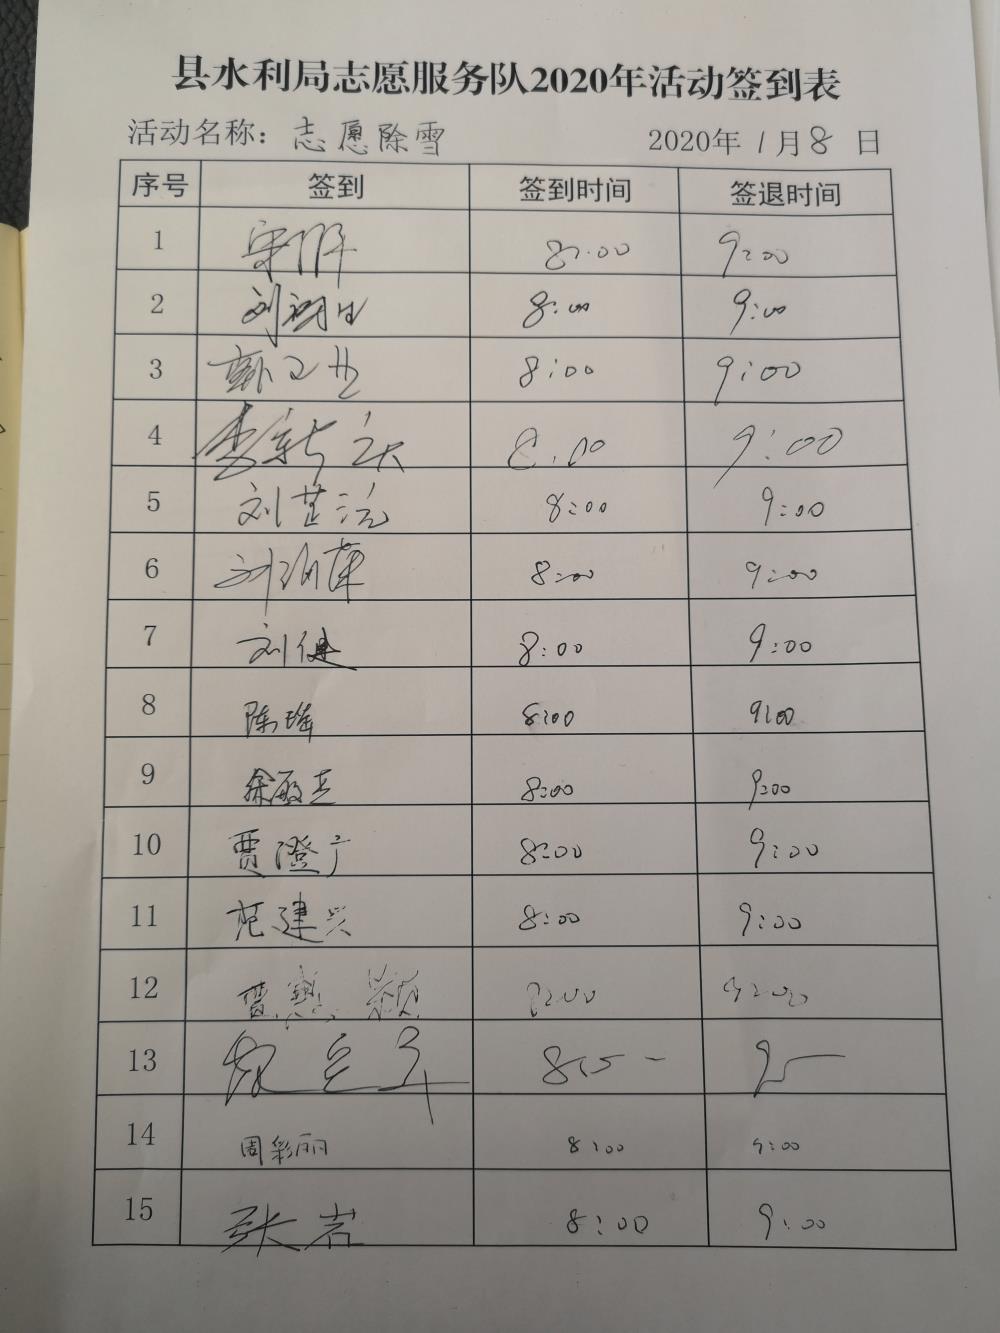 县水利局志愿服务队2020年活动签到表
活动名称：志愿除雪 2020年1月8日
序号 签到 签到时间 签退时间
1 8:00 9:00
2 刘 8:00 9:00
3 8:00 9:00
4 李新 8:00 9:00
5 刘芷沅 8:00 9:00
6 刘 8:00 9:00
7 刘健 8:00 9:00
8 陈瑞 8:00 9:00
9 徐敏 8:00 9:00
10 贾澄宇 8:00 9:00
11 范建兴 8:00 9:00
12 8:00 9:00
13
14 周彩丽 8:00 9:00
15 张岩 8:00 9:00